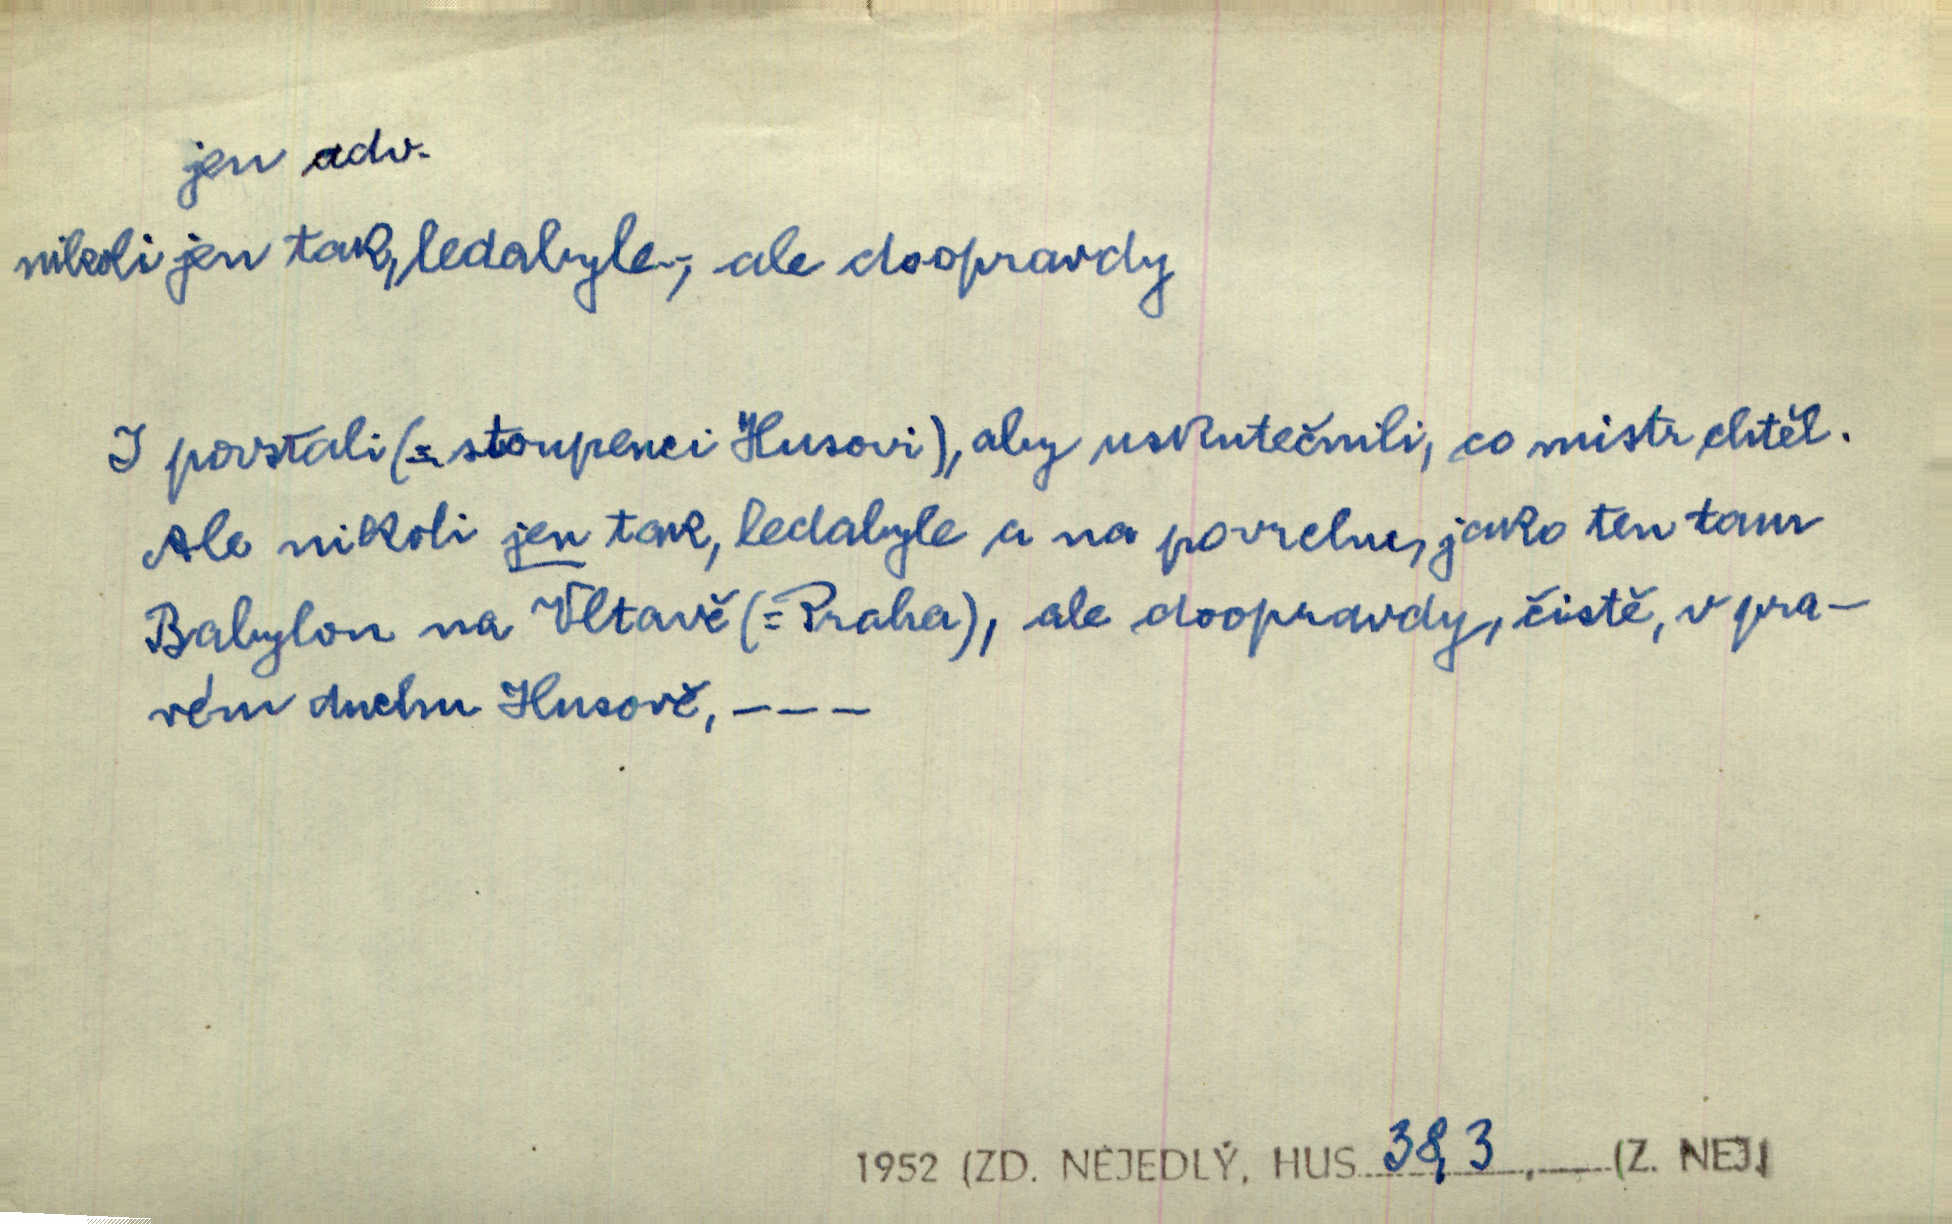 jen adv.
nikoli jen tak, ledabyle-, ale doopravdy
I povstali (= stoupenci Husovi), aby uskutečnili, co mistr chtěl.
Ale nikoli jen tak, ledabyle a na povrchu, jako ten tam
Babylon na Vltavě (= Praha), ale doopravdy, čistě, v pra-
vém duchu Husově, ---
1952 (ZD. NEJEDLÝ, HUS 38, 3 . (Z. NEJ.)